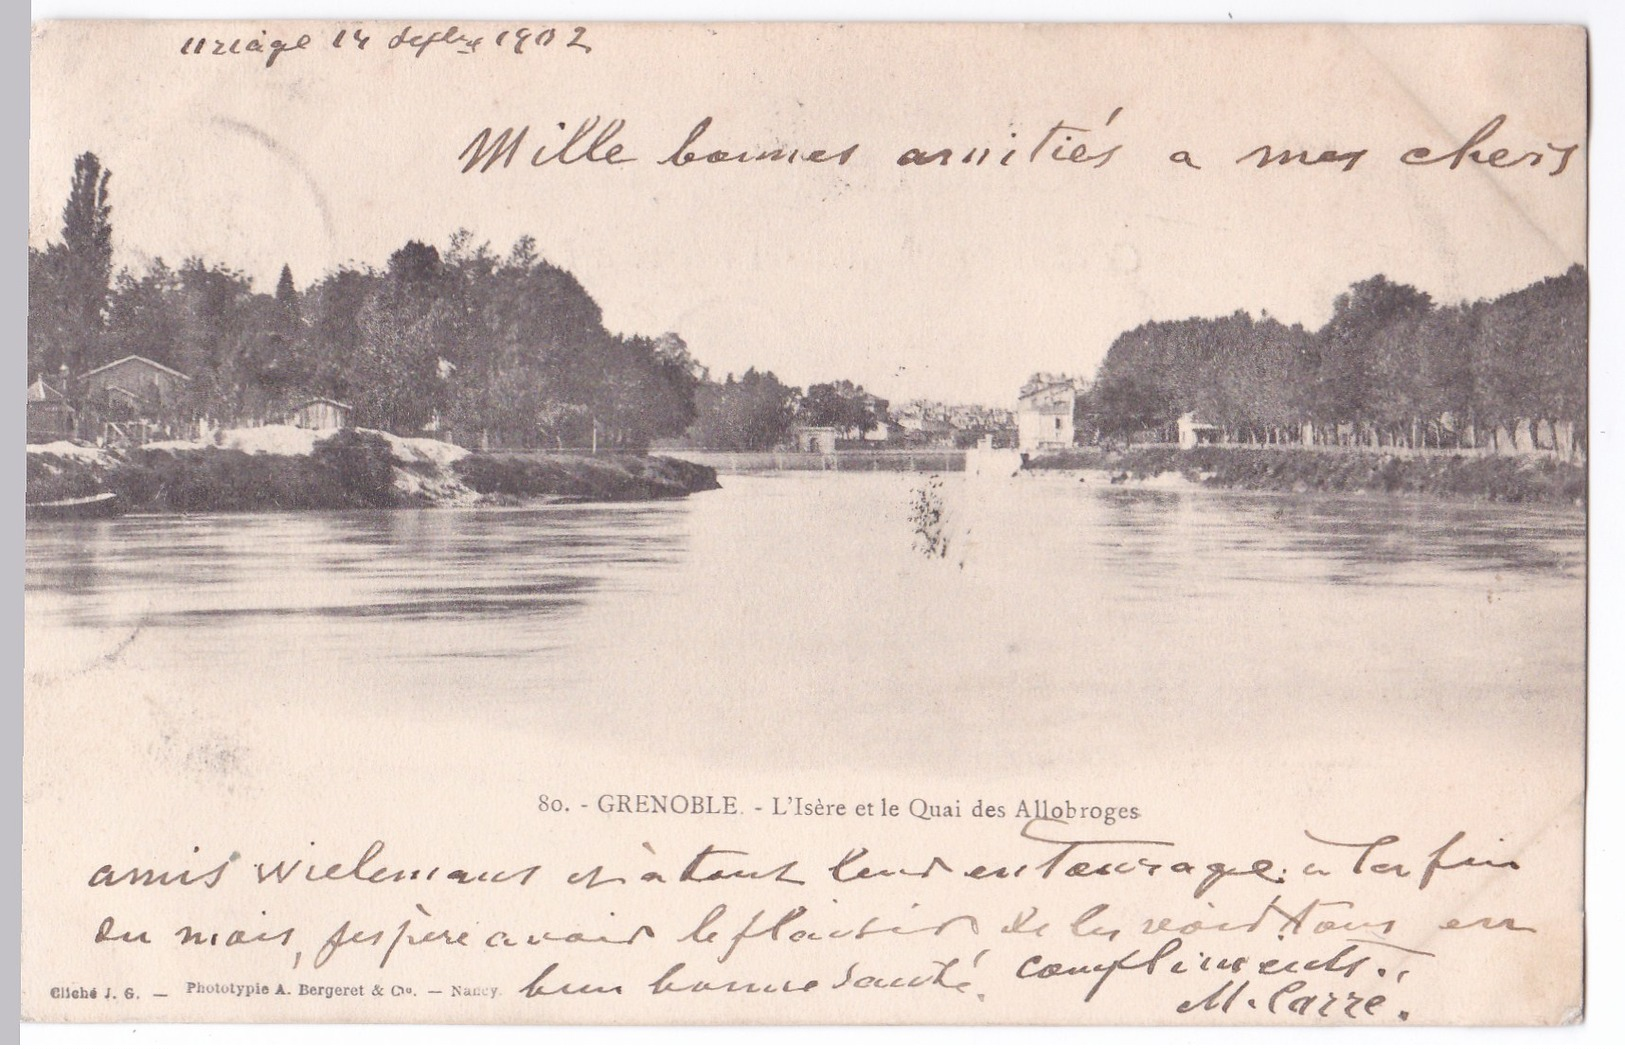 Uriage 14 Septbre 1902
Mille bonnes amitiés a mes chers
80. - GRENOBLE. - L'Isère et le Quai des Allobroges
amis Wielemans et à tout leur entourage. a la fin
du mois, j'espère avoir le plaisir de les revoir tous en
bien bonne santé. Compliments.
M. Carré.
Cliché J. G. — Phototypie A. Bergeret & Cie. — Nancy.